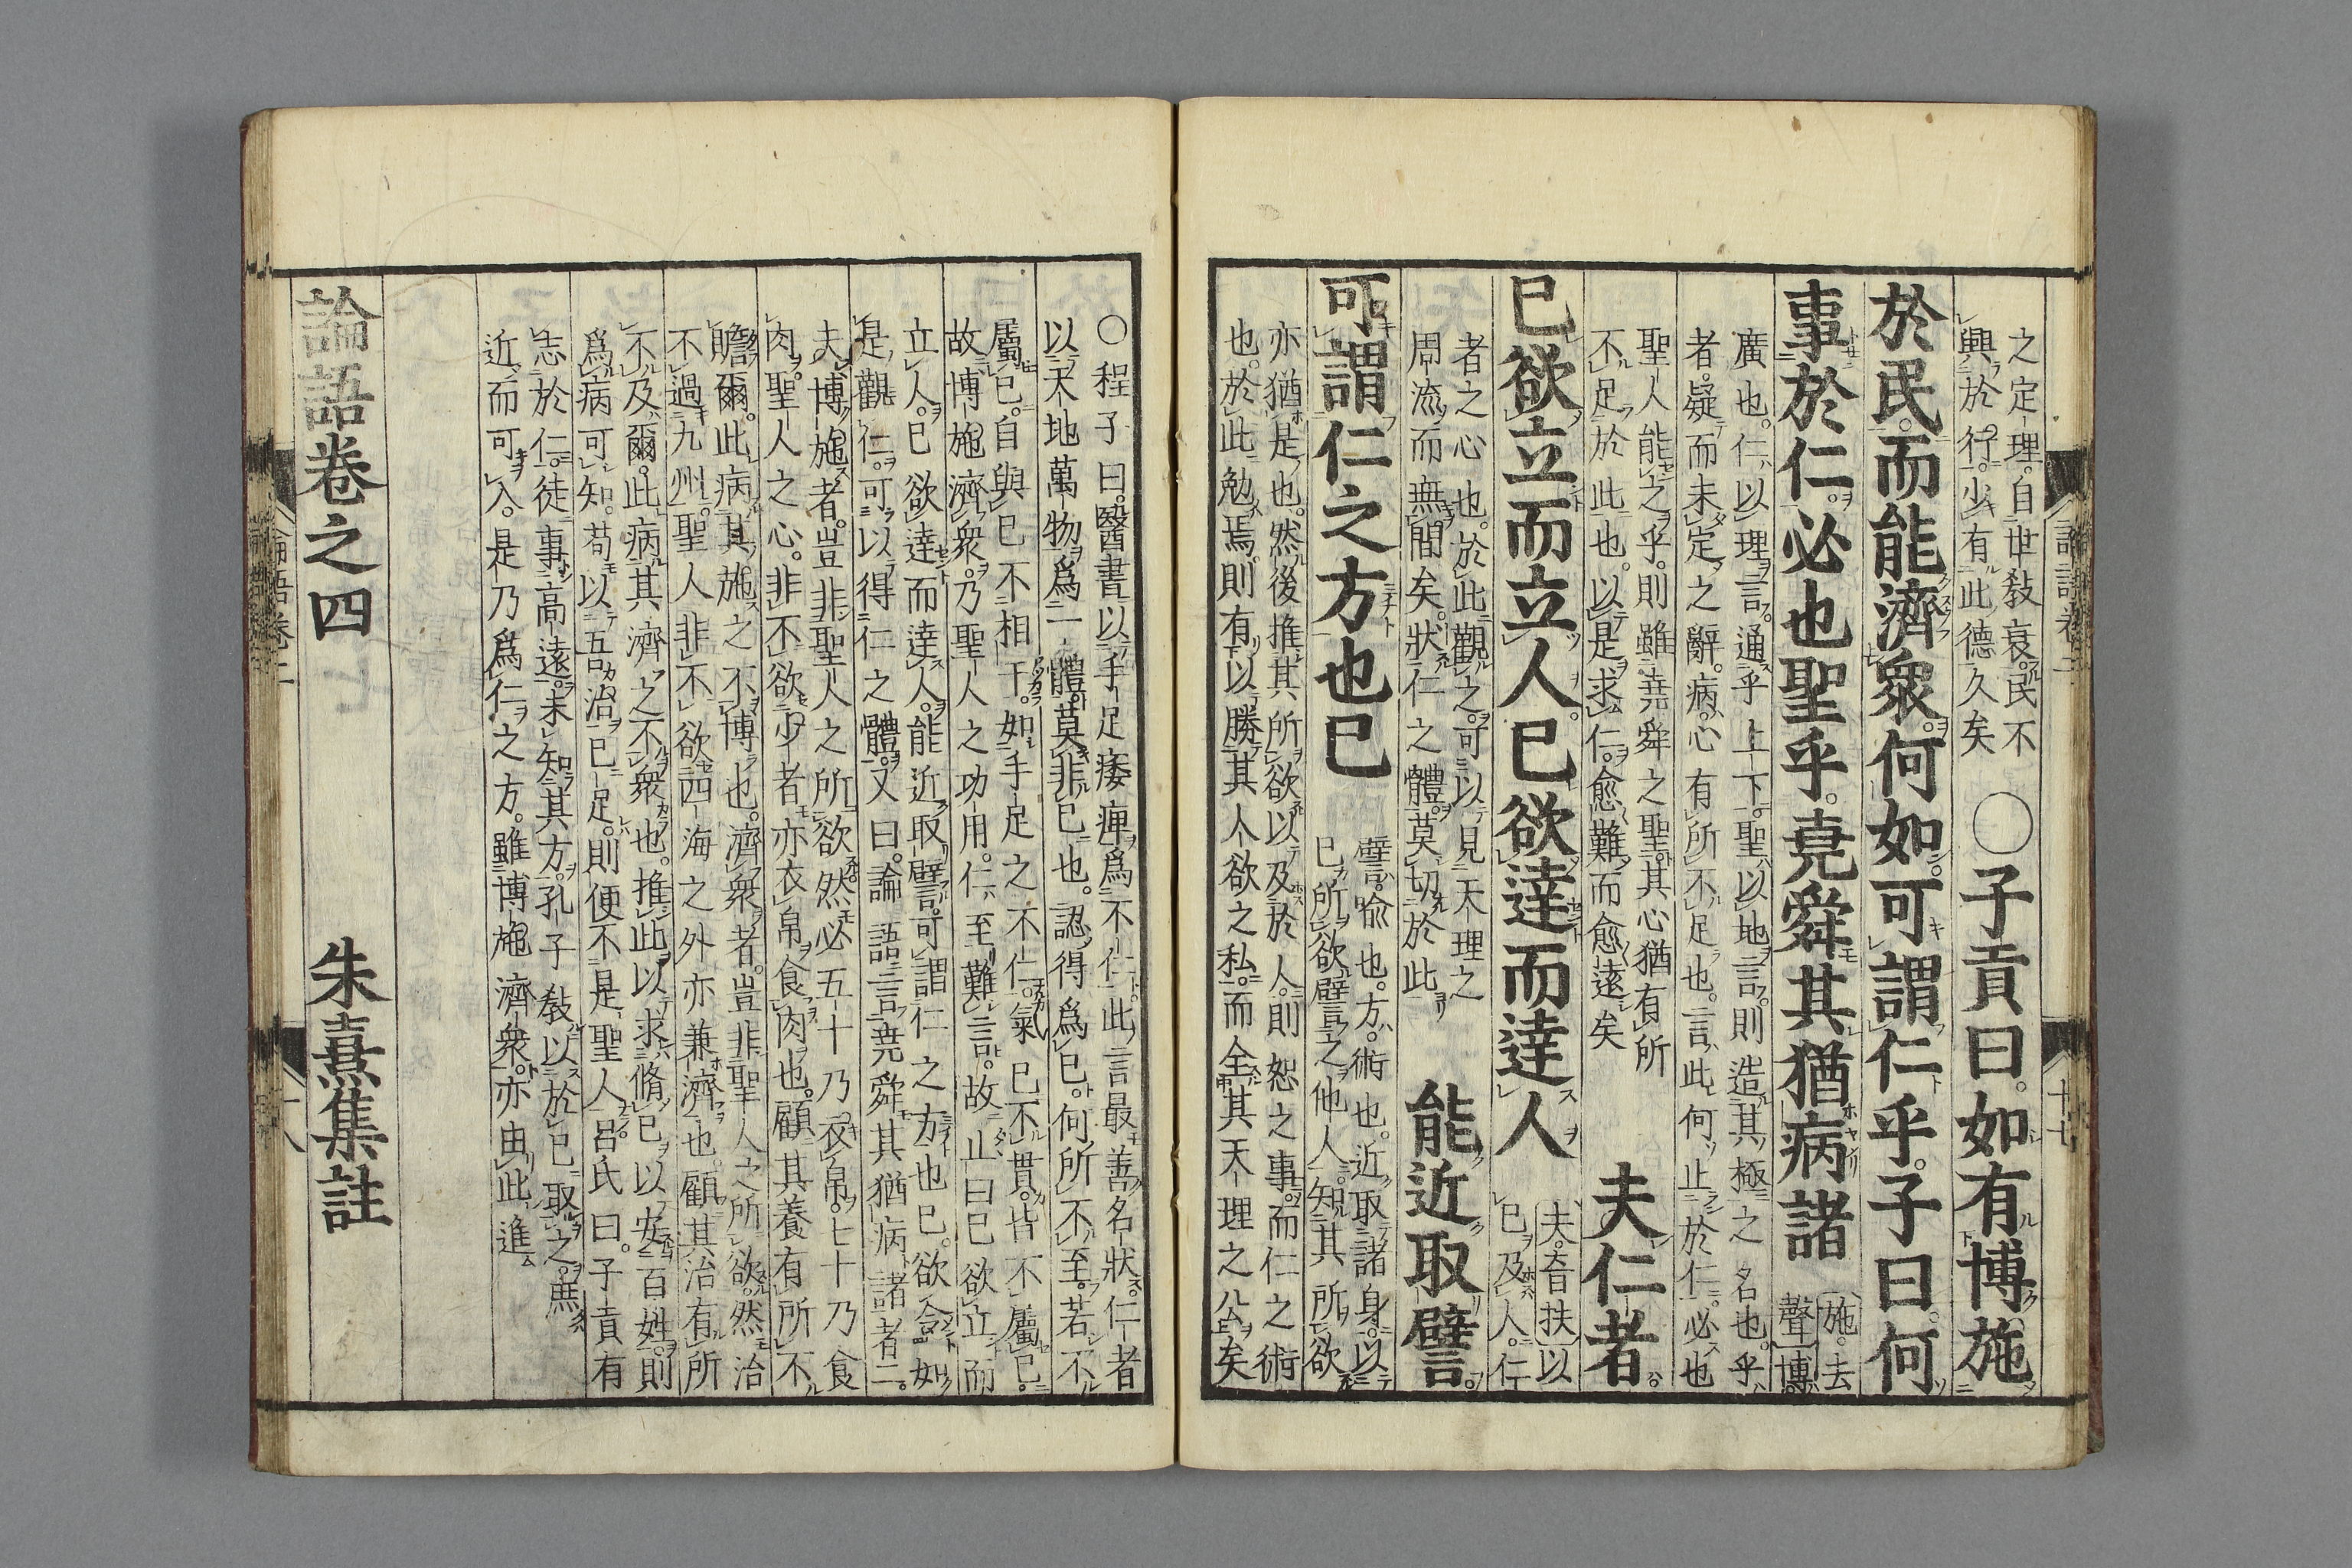 之定理自世教衰民不
興於行少有此德久矣
○子貢曰如有博施
於民而能濟衆何如可謂仁乎子曰何
事於仁必也聖乎堯舜其猶病諸
施去
聲博
廣也仁以理言通乎上下聖以地言則造其極之名也乎
者疑而未定之辭病心有所不足也言此何止於仁必也
聖人能之乎則雖堯舜之聖其心猶有所
不足於此也以是求仁愈難而愈遠矣
夫仁者
己欲立而立人己欲達而達人
夫音扶以
己及人仁
者之心也於此觀之可以見天理之
周流而無閒矣狀仁之體莫切於此
能近取譬
可謂仁之方也已
譬喻也方術也近取諸身以
己所欲譬之他人知其所欲
亦猶是也然後推其所欲以及於人則恕之事而仁之術
也於此勉焉則有以勝其人欲之私而全其天理之公矣
論語卷二
十七
○程子曰醫書以手足痿痺爲不仁此言最善名狀仁者
以天地萬物爲一體莫非己也認得爲己何所不至若不
屬己自與己不相干如手足之不仁氣已不貫皆不屬己
故博施濟衆乃聖人之功用仁至難言故止曰己欲立而
立人己欲達而達人能近取譬可謂仁之方也已欲令如
是觀仁可以得仁之體又曰論語言堯舜其猶病諸者二
夫博施者豈非聖人之所欲然必五十乃衣帛七十乃食
肉聖人之心非不欲少者亦衣帛食肉也顧其養有所不
贍爾此病其施之不博也濟衆者豈非聖人之所欲然治
不過九州聖人非不欲四海之外亦兼濟也顧其治有所
不及爾此病其濟之不衆也推此以求脩己以安百姓則
爲病可知苟以吾治已足則便不是聖人呂氏曰子貢有
志於仁徒事高遠未知其方孔子教以於己取之庶
近而可入是乃爲仁之方雖博施濟衆亦由此進
論語卷之四
朱熹集註
論語卷二
十八